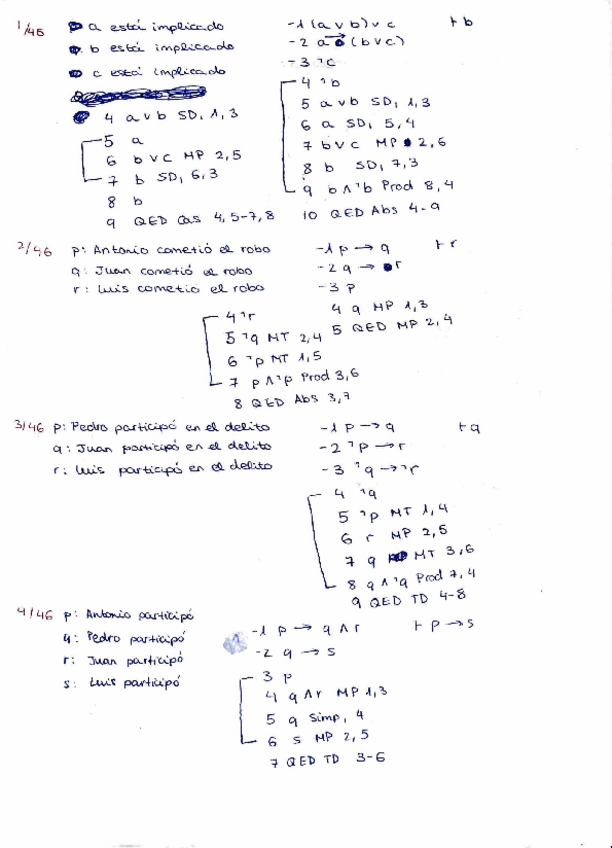 1/45 a está implicado
b está implicado
c está implicado
4 a v b SD, 1,3
5 a
6 b v c MP 2,5
7 b SD, 6,3
8 b
9 QED Cas 4,5-7,8
-1 (a v b) v c ⊢ b
-2 a → (b v c)
-3 ¬c
4 ¬b
5 a v b SD, 1,3
6 a SD, 5,4
7 b v c MP 2,6
8 b SD, 7,3
9 b ∧ ¬b Prod 8,4
10 QED Abs 4-9
2/46 p: Antonio cometió el robo
q: Juan cometió el robo
r: Luis cometió el robo
-1 p → q ⊢ r
-2 q → r
-3 p
4 q MP 1,3
5 QED MP 2,4
4 ¬r
5 ¬q MT 2,4
6 ¬p MT 1,5
7 p ∧ ¬p Prod 3,6
8 QED Abs 3,7
3/46 p: Pedro participó en el delito
q: Juan participó en el delito
r: Luis participó en el delito
-1 p → q ⊢ q
-2 ¬p → r
-3 ¬q → ¬r
4 ¬q
5 ¬p MT 1,4
6 r MP 2,5
7 q MT 3,6
8 q ∧ ¬q Prod 7,4
9 QED TD 4-8
4/46 p: Antonio participó
q: Pedro participó
r: Juan participó
s: Luis participó
-1 p → q ∧ r ⊢ p → s
-2 q → s
3 p
4 q ∧ r MP 1,3
5 q Simp, 4
6 s MP 2,5
7 QED TD 3-6